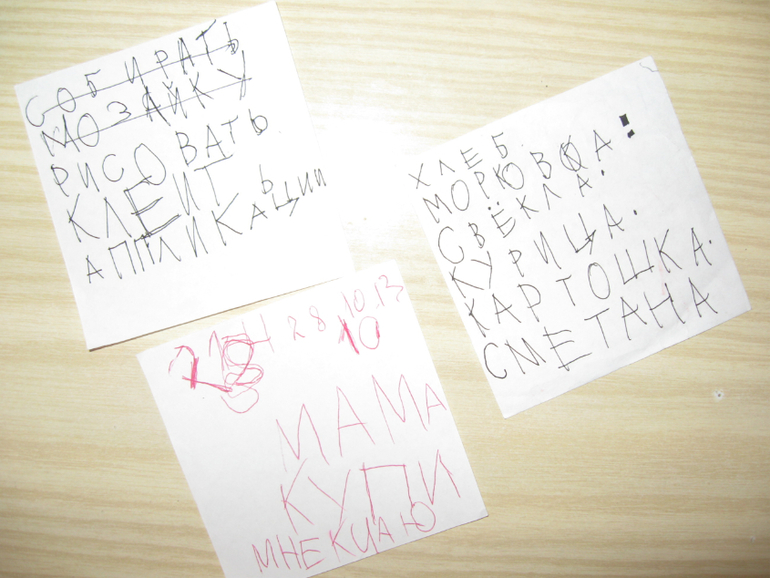 СОБИРАТЬ
МОЗАЙКУ
РИСОВАТЬ
КЛЕИТЬ
АППЛИКАЦИИ
ХЛЕБ
МОРКОВКА:
СВЁКЛА.
КУРИЦА.
КАРТОШКА.
СМЕТАНА
28 10 13
10
МАМА
КУПИ
МНЕ